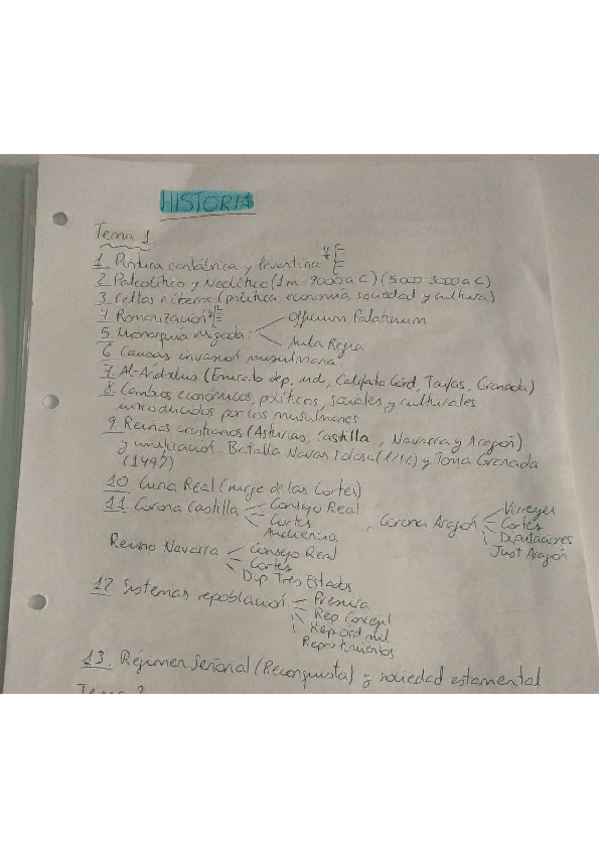 HISTORIA
Tema 1.
1. Pintura cantábrica y levantina
2. Paleolítico y Neolítico (1m - 9000 a C) (5000-3000 a C)
3. Celtas e iberos (política, economía, sociedad y cultura)
4. Romanización
5. Monarquía visigoda: Officium Palatinum
Aula Regia
6. Causas invasión musulmana
7. Al-Ándalus (Emirato dep, ind, Califato Córd, Taifas, Granada)
8. Cambios económicos, políticos, sociales y culturales
introducidos por los musulmanes
9. Reinos cristianos (Asturias, Castilla, Navarra y Aragón)
y unificación. Batalla Navas Tolosa (1212) y Toma Granada
(1492)
10. Curia Real (surge de las Cortes)
11. Corona Castilla Consejo Real
Cortes
Audiencia
, Corona Aragón Virreyes
Cortes
Diputaciones
Just Aragón
Reino Navarra Consejo Real
Cortes
Dip Tres Estados
12. Sistemas repoblación Presura
Rep Concejil
Rep ord mil
Repartimientos
13. Régimen señorial (Reconquista) y sociedad estamental
Tema 2